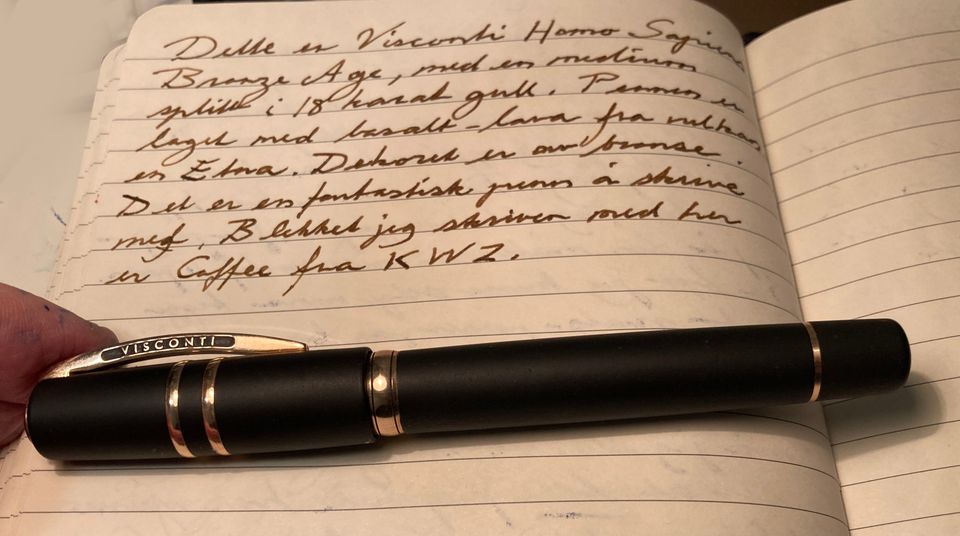 Dette er Visconti Homo Sapiens
Bronze Age, med en medium
splitt i 18 karat gull. Pennen er
laget med basalt-lava fra vulkan
en Etna. Dekoret er av bronse.
Det er en fantastisk penn å skrive
med. Blekket jeg skriver med her
er Coffee fra KWZ.
VISCONTI